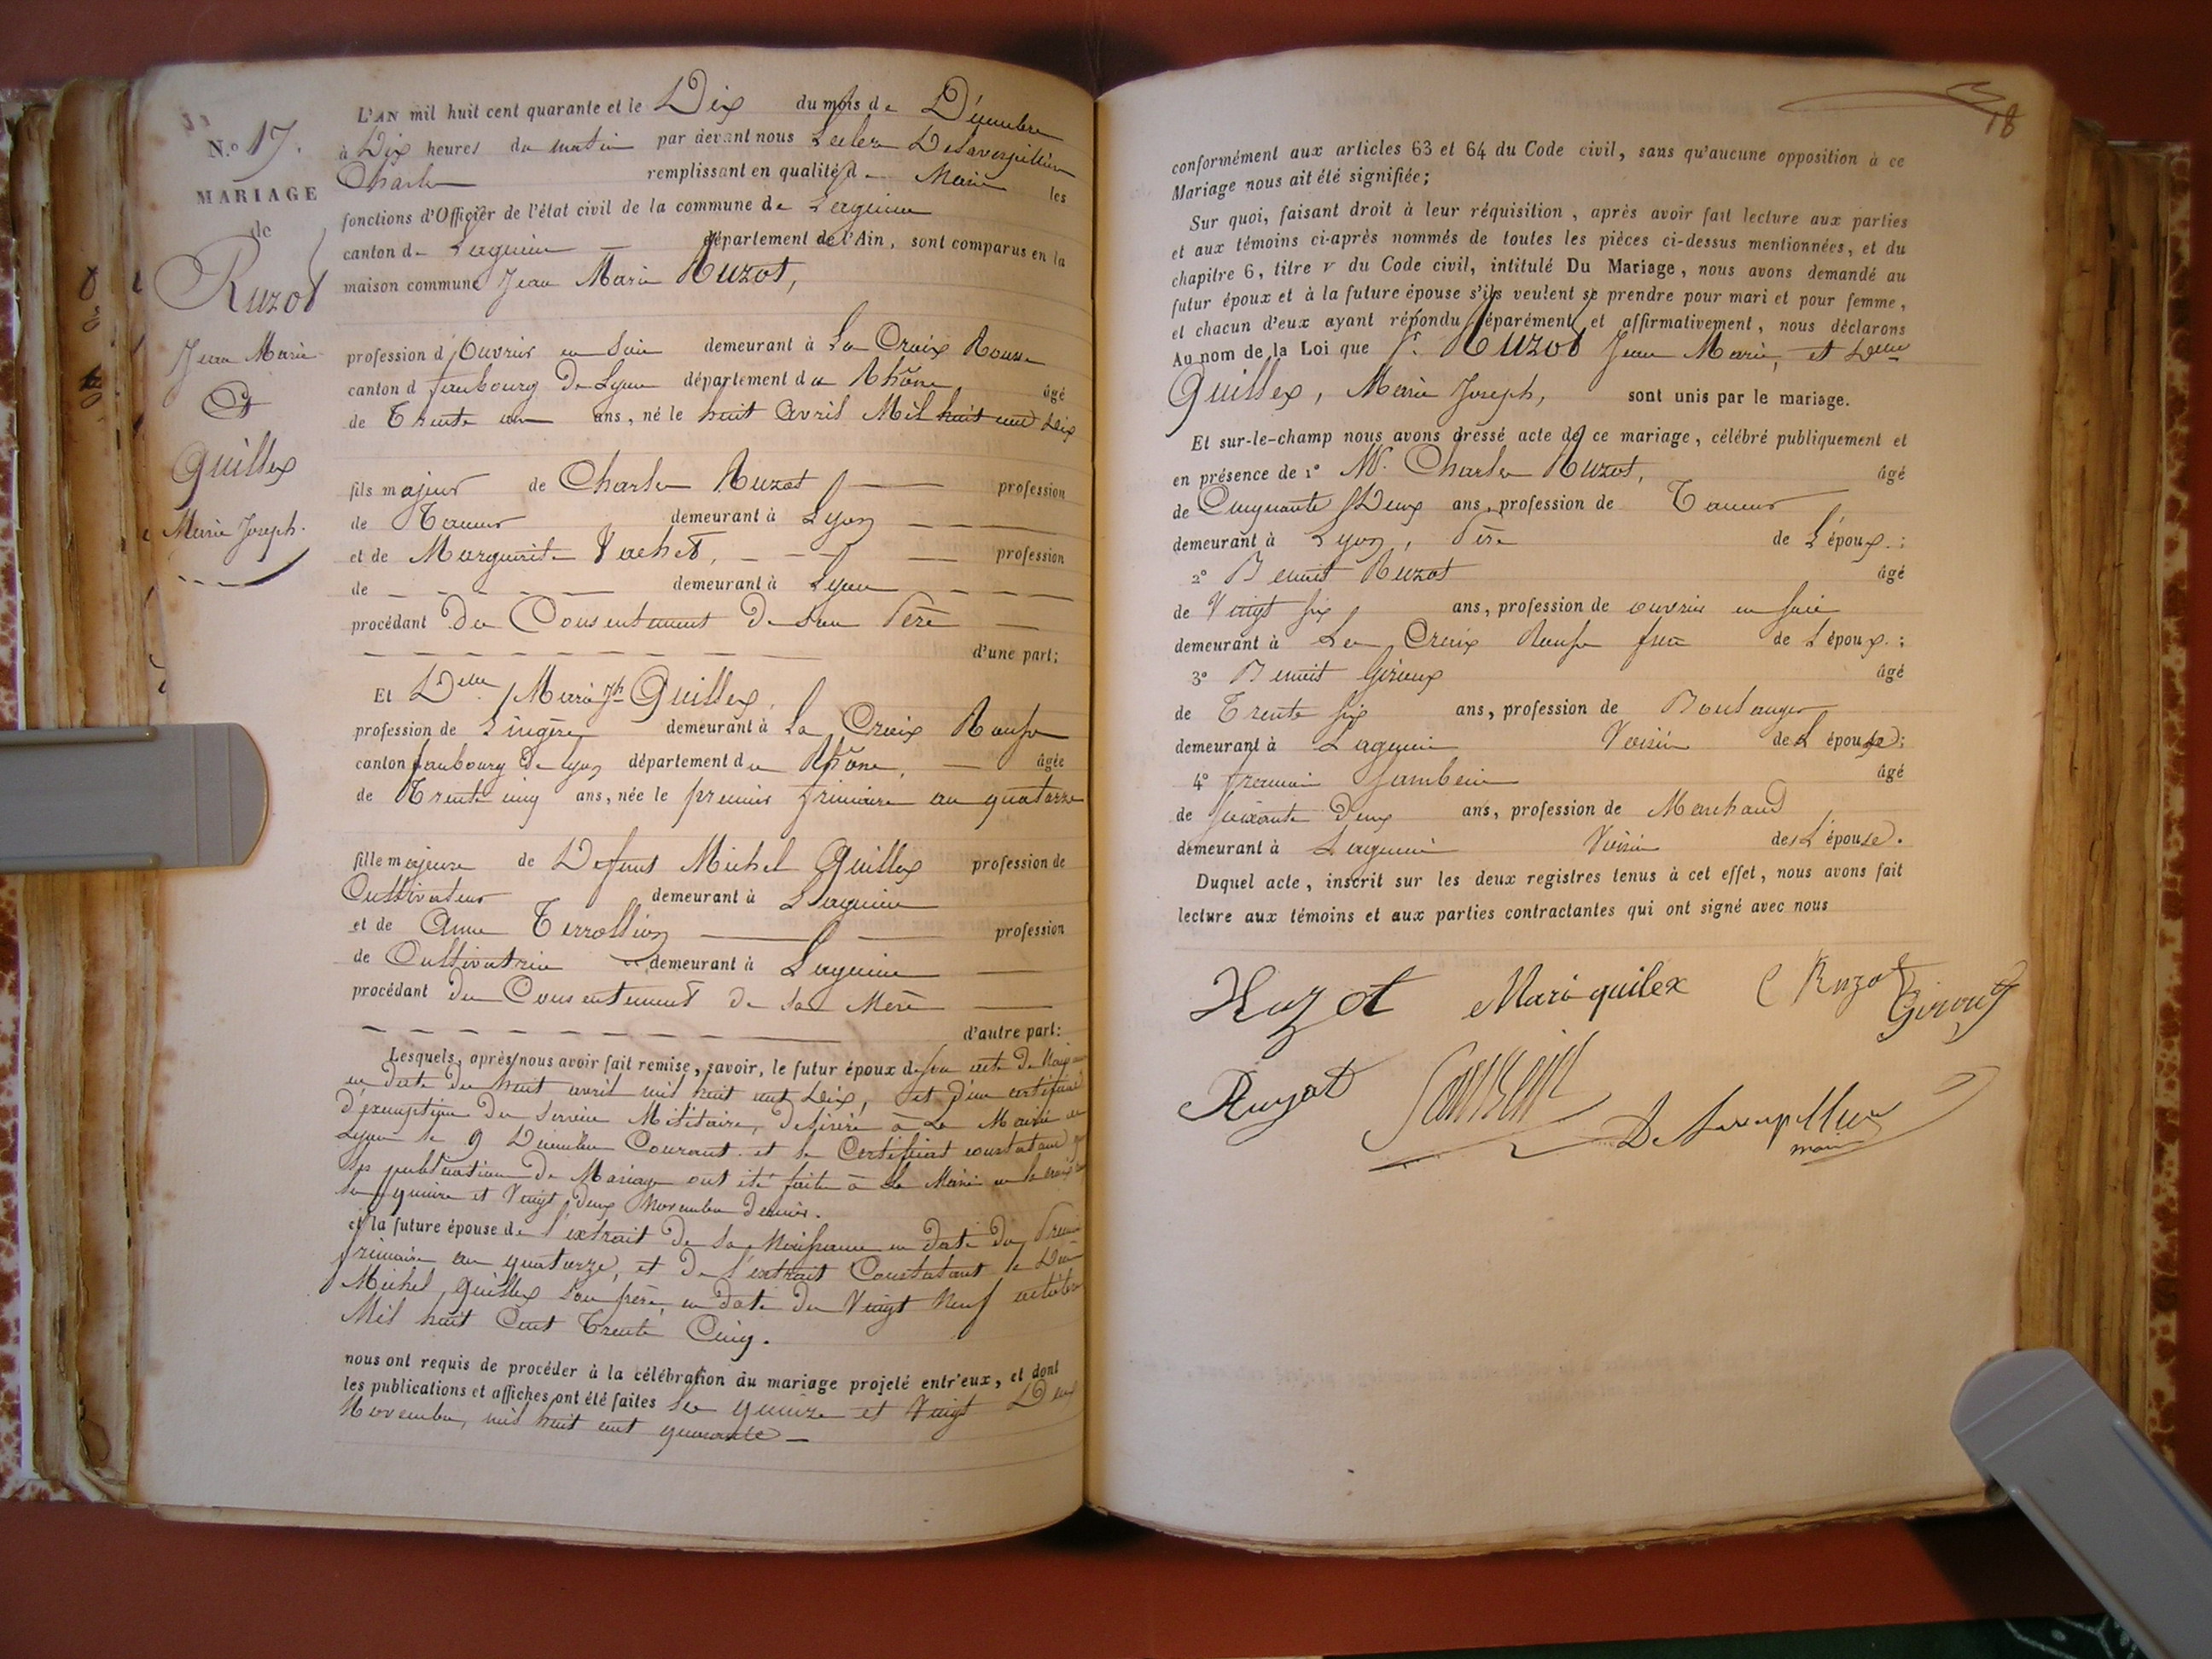 N.o 17.
MARIAGE
de
Ruzot
Jean Marie
Et
Quillex
Marie Joseph.
L'AN mil huit cent quarante et le Dix du mois de Décembre
à Dix heures du matin par devant nous Leclerc Desaverpillière
Charles remplissant en qualité de Maire les
fonctions d'Officier de l'état civil de la commune de Lagnieu
canton de Lagnieu — département de l'Ain, sont comparus en la
maison commune Jean Marie Ruzot,
profession d'Ouvrier en Soie demeurant à La Croix Rousse
canton d faubourg De Lyon département du Rhône, âgé
de Trente ans ans, né le huit Avril Mil huit cent Dix
fils majeur de Charles Ruzot — profession
de Tanneur demeurant à Lyon — — —
et de Marguerite Vachet, — — — profession
de — — — — demeurant à Lyon — — — —
procédant Du Consentement De Son Père —
— — — — — — — d'une part;
Et Delle Marie Jh Quillex,
profession de Lingère demeurant à La Croix Rousse
canton faubourg De Lyon département du Rhône, — âgée
de Trente cinq ans, née le premier frimaire an quatorze
fille majeure de Defunt Michel Quillex profession de
Cultivateur demeurant à Lagnieu
et de Anne Terrollion — — profession
de Cultivatrice demeurant à Lagnieu —
procédant du Consentement De Sa Mère —
— — — — — — — — — d'autre part:
Lesquels, après nous avoir fait remise, savoir, le futur époux de son acte De Naissance
en Date du huit avril mil huit cent Dix, et d'un certificat
d'exemption du Service Militaire, Délivré à La Mairie de
Lyon le 9 Décembre Courant et le Certificat constatant que
les publications De Mariage ont été faites à La Mairie
les quinze et Vingt Deux Novembre Dernier.
et la future épouse de l'extrait De Sa Naissance en Date Du Premier
frimaire an quatorze, et De l'extrait Constatant le
Michel Quillex Son père, en Date Du Vingt Neuf octobre
Mil huit Cent Trente Cinq.
nous ont requis de procéder à la célébration du mariage projeté entr'eux, et dont
les publications et affiches ont été faites les quinze et Vingt Deux
Novembre, mil huit cent quarante —
18
conformément aux articles 63 et 64 du Code civil, sans qu'aucune opposition à ce
Mariage nous ait été signifiée;
Sur quoi, faisant droit à leur réquisition, après avoir fait lecture aux parties
et aux témoins ci-après nommés de toutes les pièces ci-dessus mentionnées, et du
chapitre 6, titre v du Code civil, intitulé Du Mariage, nous avons demandé au
futur époux et à la future épouse s'ils veulent se prendre pour mari et pour femme,
et chacun d'eux ayant répondu séparément et affirmativement, nous déclarons
Au nom de la Loi que Sr. Ruzot Jean Marie, et Delle
Quillex, Marie Joseph, sont unis par le mariage.
Et sur-le-champ nous avons dressé acte de ce mariage, célébré publiquement et
en présence de 1° M. Charles Ruzot, âgé
de Cinquante Deux ans, profession de Tanneur
demeurant à Lyon, Père de L'époux.;
2° Benoit Ruzot âgé
de Vingt Six ans, profession de ouvrier en soie
demeurant à La Croix Rousse frère de L'époux.;
3° Benoit Giroux âgé
de Trente Six ans, profession de Boulanger
demeurant à Lagnieu Voisin de L'épouse;
4° Jambein âgé
de soixante Deux ans, profession de Marchand
demeurant à Lagnieu Voisin de L'épouse.
Duquel acte, inscrit sur les deux registres tenus à cet effet, nous avons fait
lecture aux témoins et aux parties contractantes qui ont signé avec nous
Ruzot Marie quilex C Ruzot Giroux
Ruzot Jambein
maire